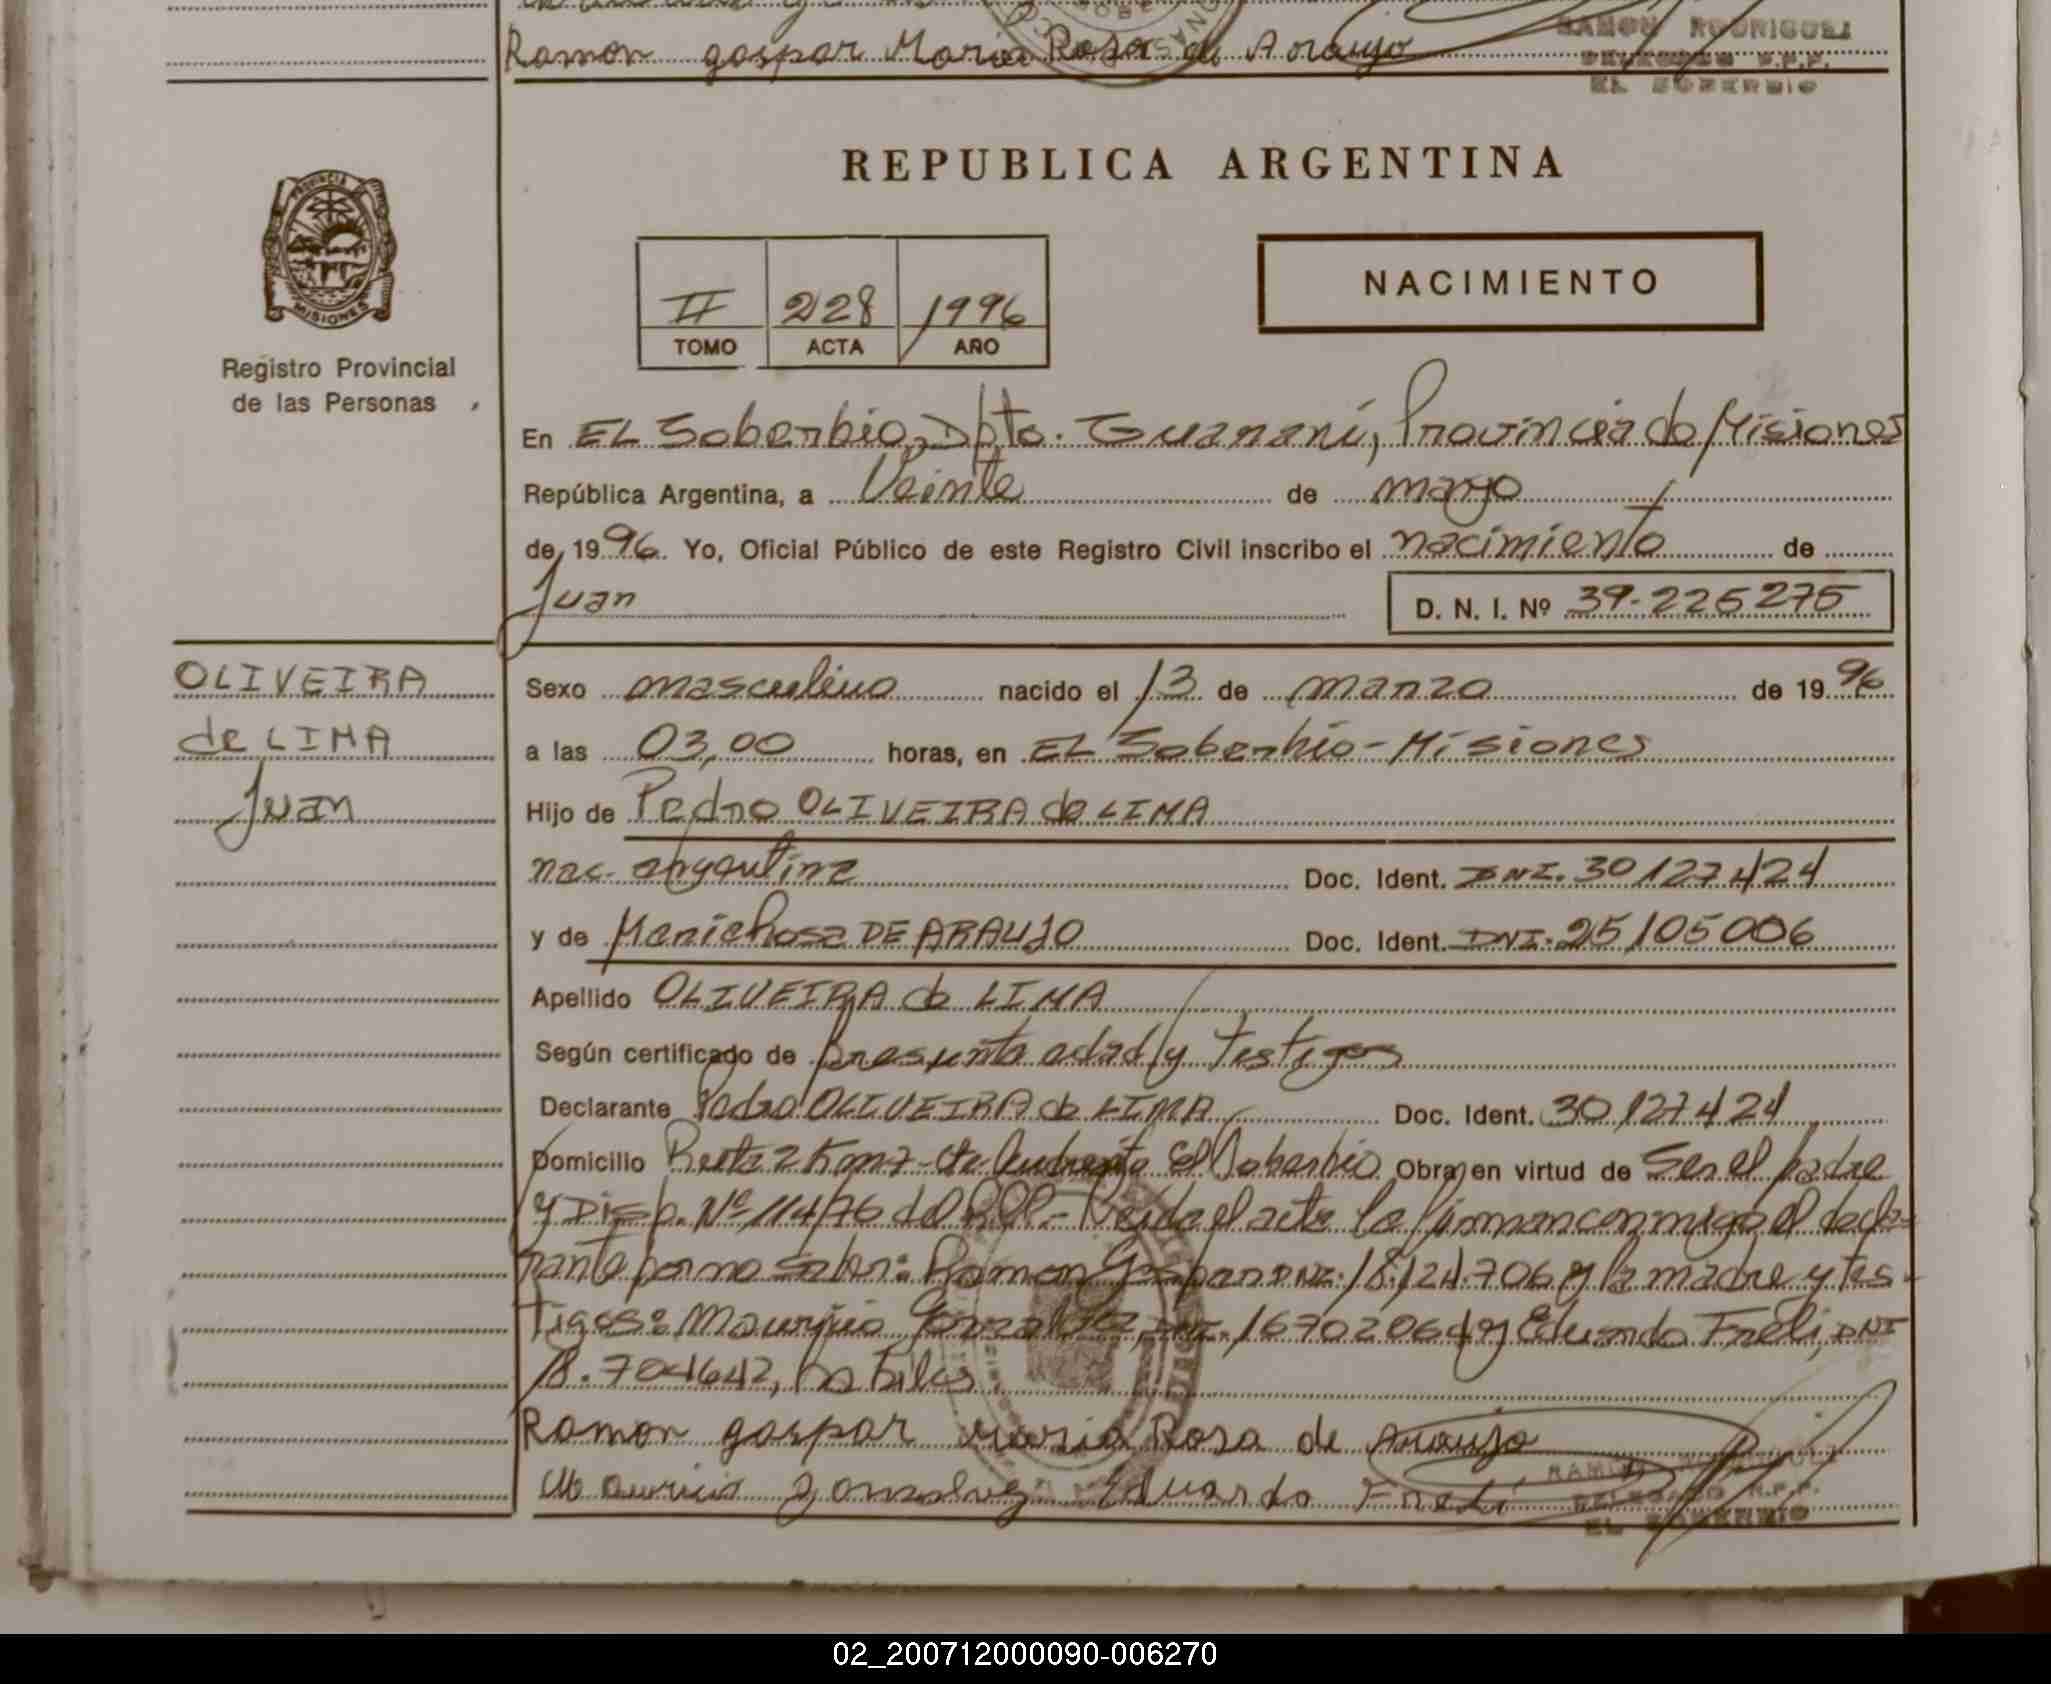 Ramon gaspar Maria Rosa de Araujo
RAMON RODRIGUEZ
DELEGADO R.P.P.
EL SOBERBIO
REPUBLICA ARGENTINA
PROVINCIA DE
MISIONES
II 228 1996
TOMO ACTA AÑO
NACIMIENTO
Registro Provincial
de las Personas
En EL Soberbio, Dpto. Guaraní, Provincia de Misiones
República Argentina, a Veinte de mayo
de 1996. Yo, Oficial Público de este Registro Civil inscribo el nacimiento de
Juan D. N. I. Nº 39.226275
OLIVEIRA
de LIMA
Juan
Sexo masculino nacido el 13 de marzo de 1996
a las 03,00 horas, en EL Soberbio-Misiones
Hijo de Pedro OLIVEIRA de LIMA
nac. argentina Doc. Ident. DNI. 30127424
y de Maria Rosa DE ARAUJO Doc. Ident. DNI. 25105006
Apellido OLIVEIRA de LIMA
Según certificado de presunta edad y Testigos
Declarante Pedro OLIVEIRA de LIMA Doc. Ident. 30127424
Domicilio Ruta 2 Km El Soberbio Obra en virtud de Ser el padre
y Disp. Nº 114/76 del Leida el acta la firman conmigo el decla-
rante por no saber: Ramon Gaspar DNI. 18.124.706 y la madre y Tes-
Tigos: Mauricio DNI. 16702064 y Eduardo Freli, DNI
18.704642, habiles
Ramon gaspar Maria Rosa de Araujo
Mauricio Eduardo Freli
RAMON RODRIGUEZ
DELEGADO R.P.P.
EL SOBERBIO
02_200712000090-006270